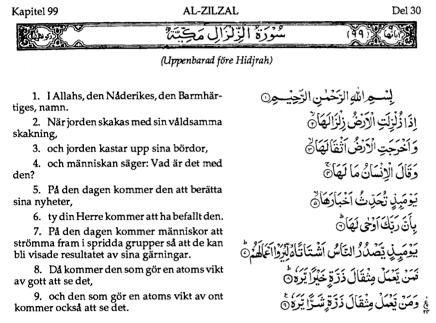 Kapitel 99 AL-ZILZAL Del 30
سُورَةُ الزِّلْزَالِ مَكِّيَّة (٩٩)
(Uppenbarad före Hidjrah)
1. I Allahs, den Nåderikes, den Barmhär-
tiges, namn.
2. När jorden skakas med sin våldsamma
skakning,
3. och jorden kastar upp sina bördor,
4. och människan säger: Vad är det med
den?
5. På den dagen kommer den att berätta
sina nyheter,
6. ty din Herre kommer att ha befallt den.
7. På den dagen kommer människor att
strömma fram i spridda grupper så att de kan
bli visade resultatet av sina gärningar.
8. Då kommer den som gör en atoms vikt
av gott att se det,
9. och den som gör en atoms vikt av ont
kommer också att se det.
بِسْمِ اللهِ الرَّحْمٰنِ الرَّحِيْمِ ۝١
اِذَا زُلْزِلَتِ الْاَرْضُ زِلْزَالَهَا ۝٢
وَاَخْرَجَتِ الْاَرْضُ اَثْقَالَهَا ۝٣
وَقَالَ الْاِنْسَانُ مَا لَهَا ۝٤
يَوْمَئِذٍ تُحَدِّثُ اَخْبَارَهَا ۝٥
بِاَنَّ رَبَّكَ اَوْحٰى لَهَا ۝٦
يَوْمَئِذٍ يَّصْدُرُ النَّاسُ اَشْتَاتًا لِّيُرَوْا اَعْمَالَهُمْ ۝٧
فَمَنْ يَّعْمَلْ مِثْقَالَ ذَرَّةٍ خَيْرًا يَّرَهٗ ۝٨
وَمَنْ يَّعْمَلْ مِثْقَالَ ذَرَّةٍ شَرًّا يَّرَهٗ ۝٩